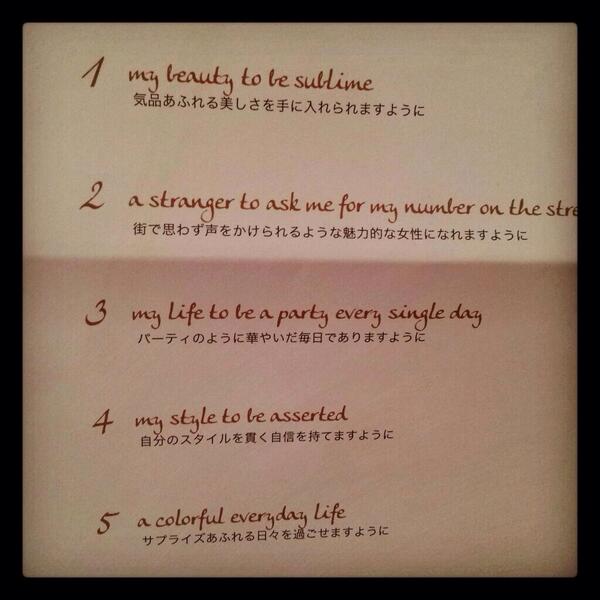 1 my beauty to be sublime
気品あふれる美しさを手に入れられますように
2 a stranger to ask me for my number on the stre
街で思わず声をかけられるような魅力的な女性になれますように
3 my life to be a party every single day
パーティのように華やいだ毎日でありますように
4 my style to be asserted
自分のスタイルを貫く自信を持てますように
5 a colorful everyday life
サプライズあふれる日々を過ごせますように